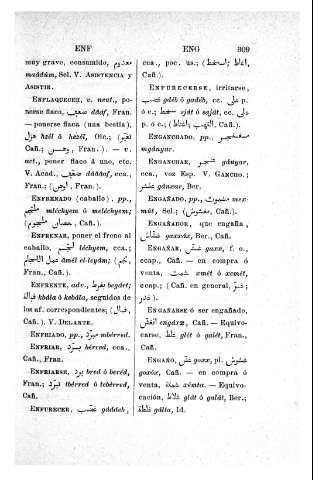 ENF ENG 309
muy grave, consumido, معدوم
maâdûm, Sel. V. ASISTENCIA y
ASISTIR.
ENFLAQUECER, v. neut., po-
nerse flaco, ضعف dâäof, Fran.
— ponerse flaca (una bestia),
هزل hzél ó hezél, Oic.; (تغيّر,
Cañ.; وهن, Fran.). — v.
act., poner flaco á uno, etc.
V. Acad., ضعّف dáâaf, cca.,
Fran.; (اوهن, Fran.).
ENFRENADO (caballo), pp.,
ملجّم mlèchyem ó melèchyem;
(ملجوم, Cañ.).
ENFRENAR, poner el freno al
caballo, لجّم léchyem, cca.;
عمل اللجام âmél el-leyâm; (لجم,
Fran., Cañ.).
ENFRENTE, adv., begáet;
قبالة kbâla ó kobâla, seguidos de
los af. correspondientes; (قبال,
Cañ.). V. DELANTE.
ENFRIADO, pp., مبرّد mbérred.
ENFRIAR, برّد bérred, cca.,
Cañ., Fran.
ENFRIARSE, برد bred ó beréd,
Fran.; تبرّد tbérred ó tebérred,
Cañ.
ENFURECER, غضّب gáddeb,
cca., poc. us.; (اغاظ,
Cañ.).
ENFURECERSE, irritarse,
غضب gdéb ó gadéb, cc. على p.
ó c.; سخط sját ó saját, cc. على
p. ó c.; (التهب; اغتاظ, Cañ.).
ENGANCHADO, pp.,
mgányar.
ENGANCHAR, gányar,
cca., voz Esp. V. GANCHO;
gánxar, Ber.
ENGAÑADO, pp.,
Sel.; (مغشوش, Cañ.).
ENGAÑADOR, que engaña,
غشّاش gaxxâx, Ber., Cañ.
ENGAÑAR, غشّ gaxx, f. o.,
ccap., Cañ. — en compra ó
venta, شمت xmét ó xemét,
ccap.; (Cañ. en general, غرّ;
غدر).
ENGAÑARSE ó ser engañado,
انغشّ engáxx, Cañ. — Equivo-
carse, غلط glét ó galét, Fran.,
Cañ.
ENGAÑO, غشّ goxx, pl. غشوش
goxóx, Cañ. — en compra ó
venta, شمتة xémta. — Equivo-
cación, غلاط glát ó galát, Ber.;
غلطة gálta, Id.